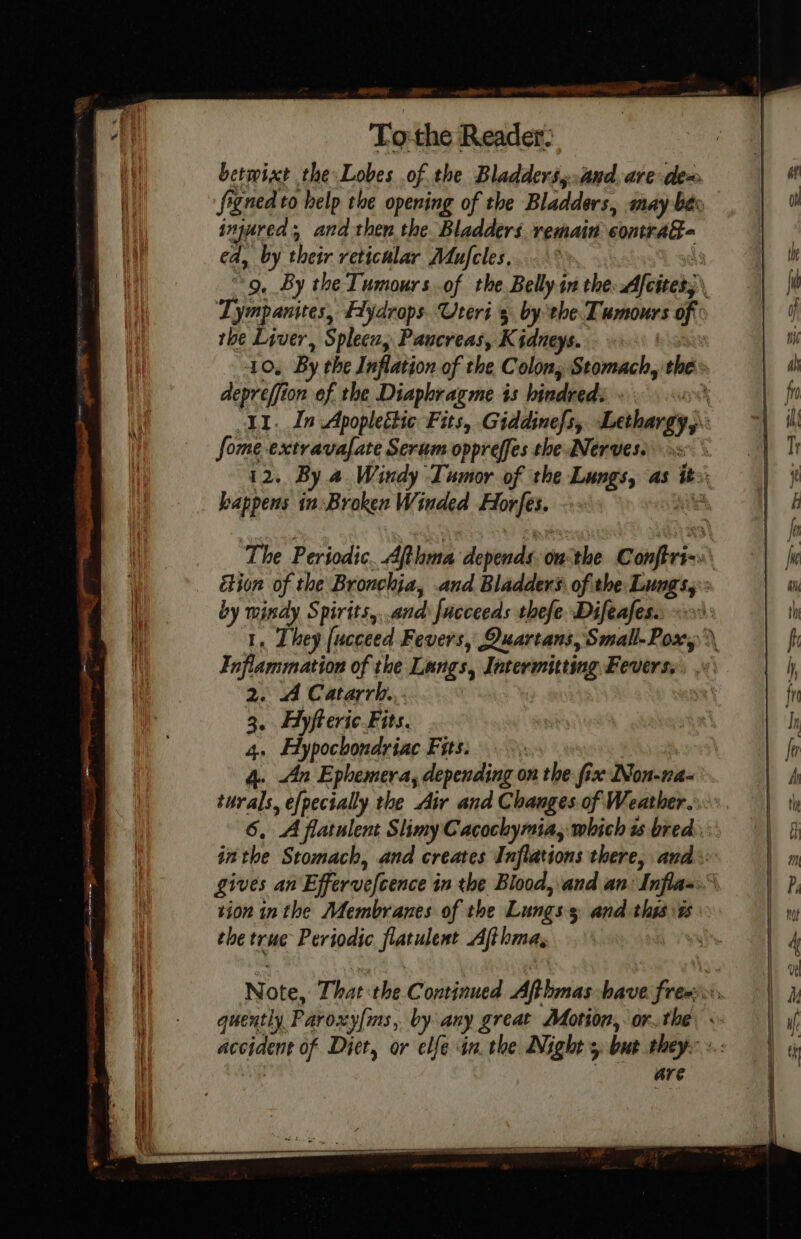 To the Reader.
betwixt the Lobes of the Bladders, and are de-
ſigned to help the opening of the Bladders, may be
injured; and then the Bladders remain contract-
ed, by their reticular Muſcles.
9. By the Tumours of the Belly in the Aſcites,
Tympanites, Hydrops Uteri; by the Tumours of
the Liver, Spleen, Pancreas, Kidneys.
10. By the Inflation of the Colon, Stomach, the
depreſſion of the Diaphragme is hindred.
11. In Apoplectic Fits, Giddineſs, Lethargy,
ſome extravaſate Serum oppreſſes the Nerves.
12. By a Windy Tumor of the Lungs, as it
happens in Broken Winded Horſes.
The Periodic Aſthma depends on the Conſtri-
ction of the Bronchia, and Bladders of the Lungs,
by windy Spirits, and ſucceeds theſe Diſeaſes.
1. They ſucceed Fevers, Quartans, Small-Pox,
Inflammation of the Lungs, Intermitting Fevers.
2. A Catarrh.
3. Hyſteric Fits.
4. Hypochondriac Fits.
4. An Ephemera, depending on the ſix Non-na-
turals, eſpecially the Air and Changes of Weather.
6. A flatulent Slimy Cacochymia, which is bred
in the Stomach, and creates Inflations there, and
gives an Efferveſcence in the Blood, and an Infla-
tion in the Membranes of the Lungs; and this is
the true Periodic flatulent Aſthma.
Note, That the Continued Aſthmas have fre-
quently Paroxyſms, by any great Motion, or the
accident of Diet, or elſe in the Night; but they
are